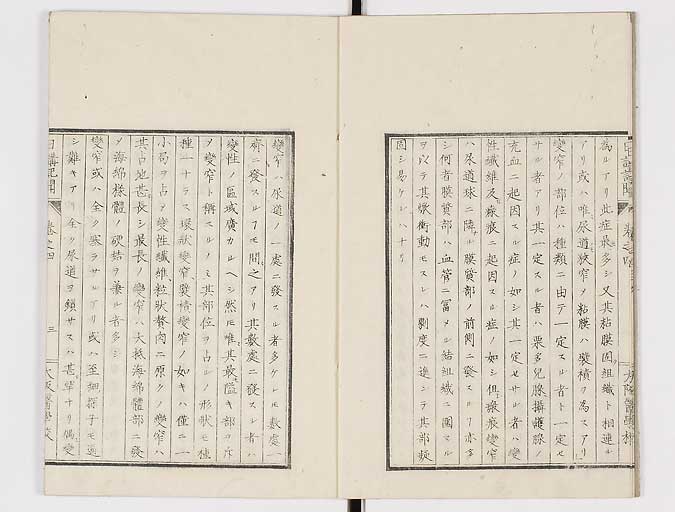 為ルアリ此症最多シ又其粘膜固組織ト相連ル
アリ或ハ唯尿道狹窄ノ粘膜ハ襞積ヲ為スアリ
變窄ノ部位ハ種類ニ由テ一定スル者ト一定セ
サル者アリ其一定スル者ハ栗多兒腺攝護腺ノ
充血ニ起因スル症ノ如シ其一定セサル者ハ變
性纖維及瘢痕ニ起因スル症ノ如シ俱瘢痕變窄
ハ尿道球ニ隣ル膜質部ノ前側ニ發スル亦多
シ何者膜質部ハ血管ニ冨メル結組織ニ圍マル
ヲ以テ其焮衝動モスレハ劇度ニ進シテ其部
固シ易ケレハナリ
變窄ハ尿道ノ一處ニ發スル者多ケレモ數處一
齊ニ發スルフモ間之アリ其數處ニ發スル者ハ
變性ノ區域廣カルヘシ然モ唯其最隘キ部ヲ斥
メ變窄ト稱スルノミ其部位ヲ占ルノ形狀モ種
種一ナラス環狀變窄襞積變窄ノ如キハ僅ニ一
小局ヲ占メ變性纖維粒狀贅肉ニ原クノ變窄ハ
其占地甚長シ最長ノ變窄ハ大抵海綿體部ニ發
メ海綿樣體ノ硬結ヲ兼ル者多シ
變窄或ハ全ク塞ラサルアリ或ハ至細探子モ通
シ難キアリ全ク尿道ヲ鎖サスハ甚罕ナリ偶變
日講記聞
卷之四
三
大阪醫學校